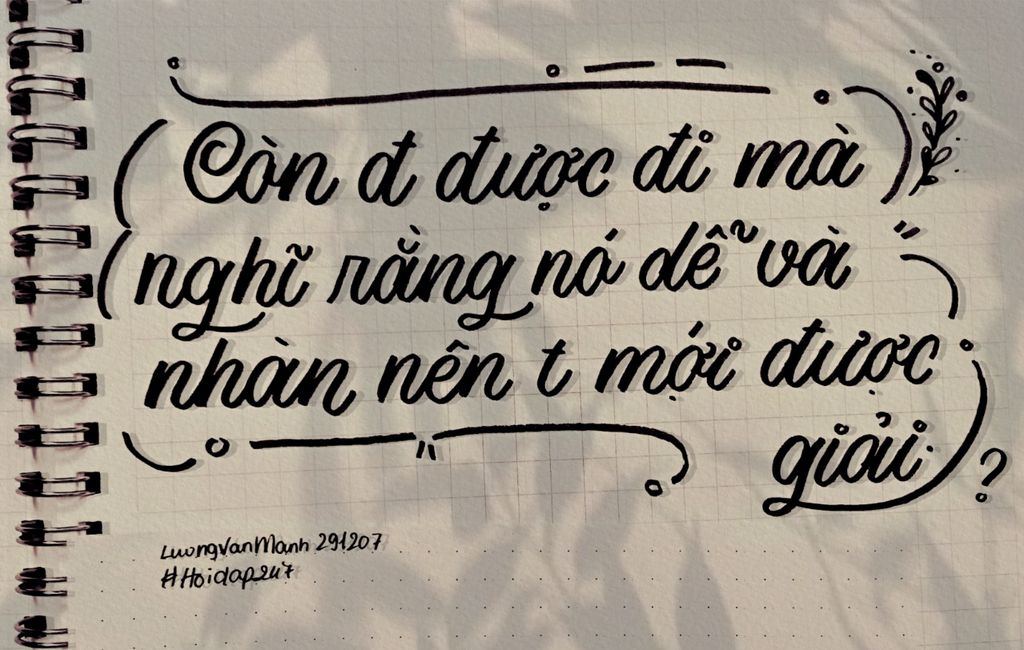 Còn đ được đi mà
nghĩ rằng nó dễ và
nhàn nên t mới được
giải.?
LuongVanManh 291207
#Hoidap247